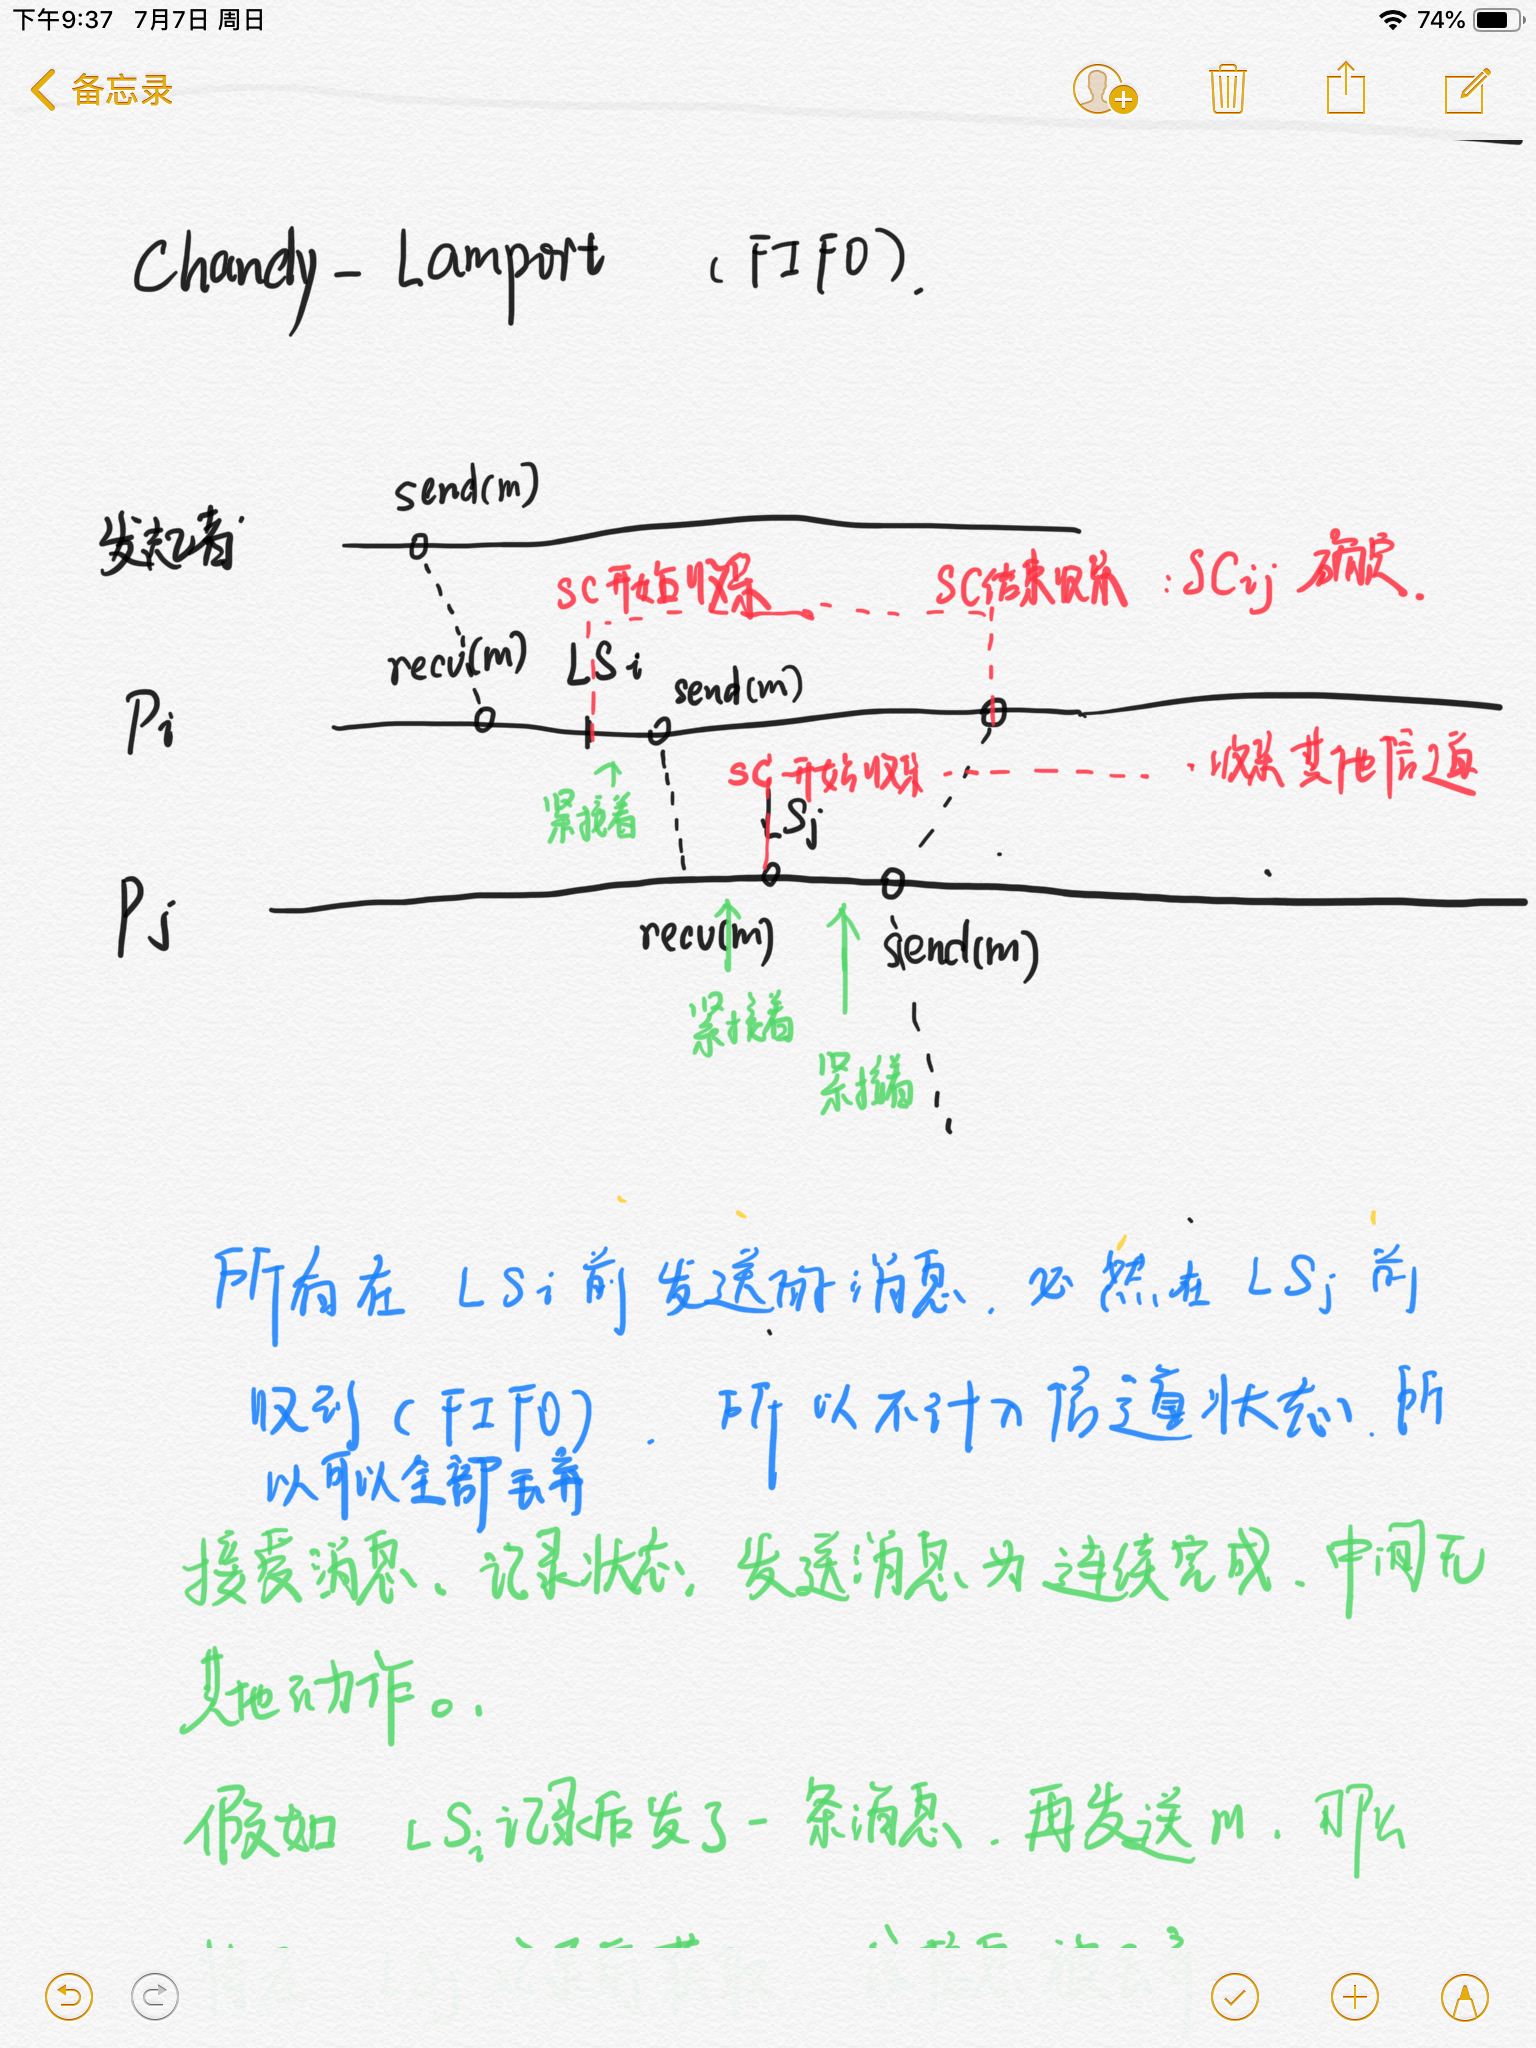 下午9:37 7月7日 周日
74%
备忘录
Chandy-Lamport (FIFO).
send(m)
发起者
SC开始收录
SC结束收录:SCij 确定.
recv(m)
LSi
send(m)
Pi
SC开始收录
收录其他信道
紧接着
LSj
Pj
recv(m)
send(m)
紧接着
紧接着
所有在 LSi前 发送的消息.必然在 LSj 前
收到(FIFO).所以不计入信道状态.所
以可以全部丢弃
接爱消息、记录状态,发送消息为连续完成.中间无
其他动作。.
假如 LSi记录后发了一条消息.再发送m.那么